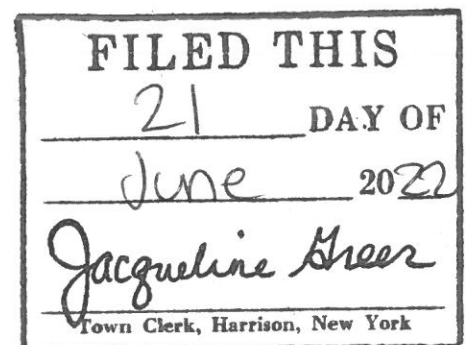 FILED THIS
21 DAY OF
June 2022
Jacqueline Greer
Town Clerk, Harrison, New York